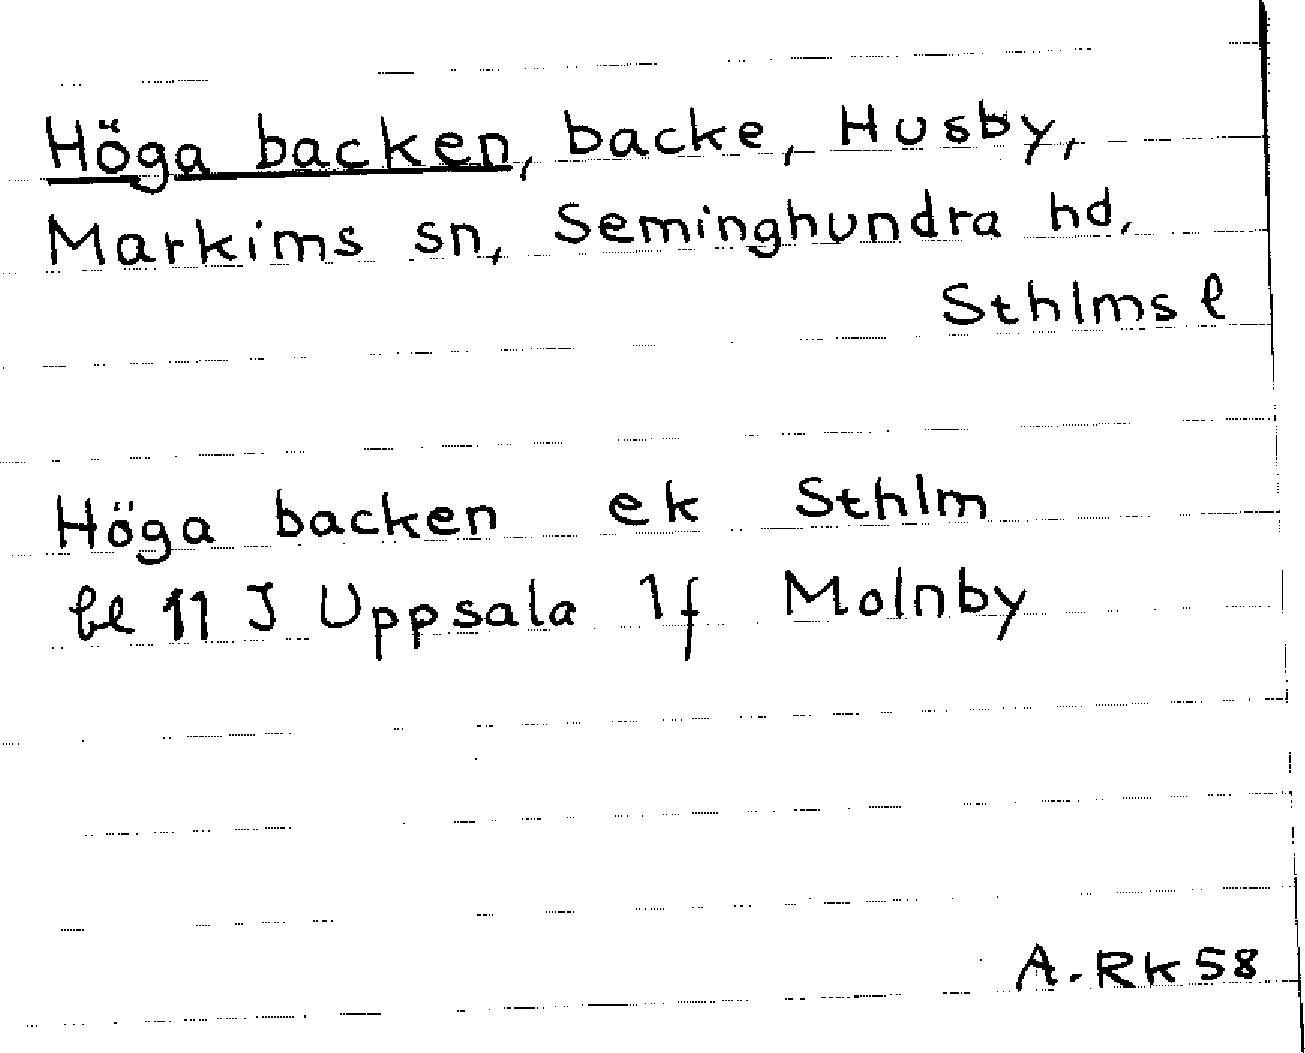 Höga backen, backe, Husby,
Markims sn, Seminghundra hd,
Sthlms l
Höga backen ek Sthlm
bl 11 J Uppsala 1f Molnby
A.RK 58